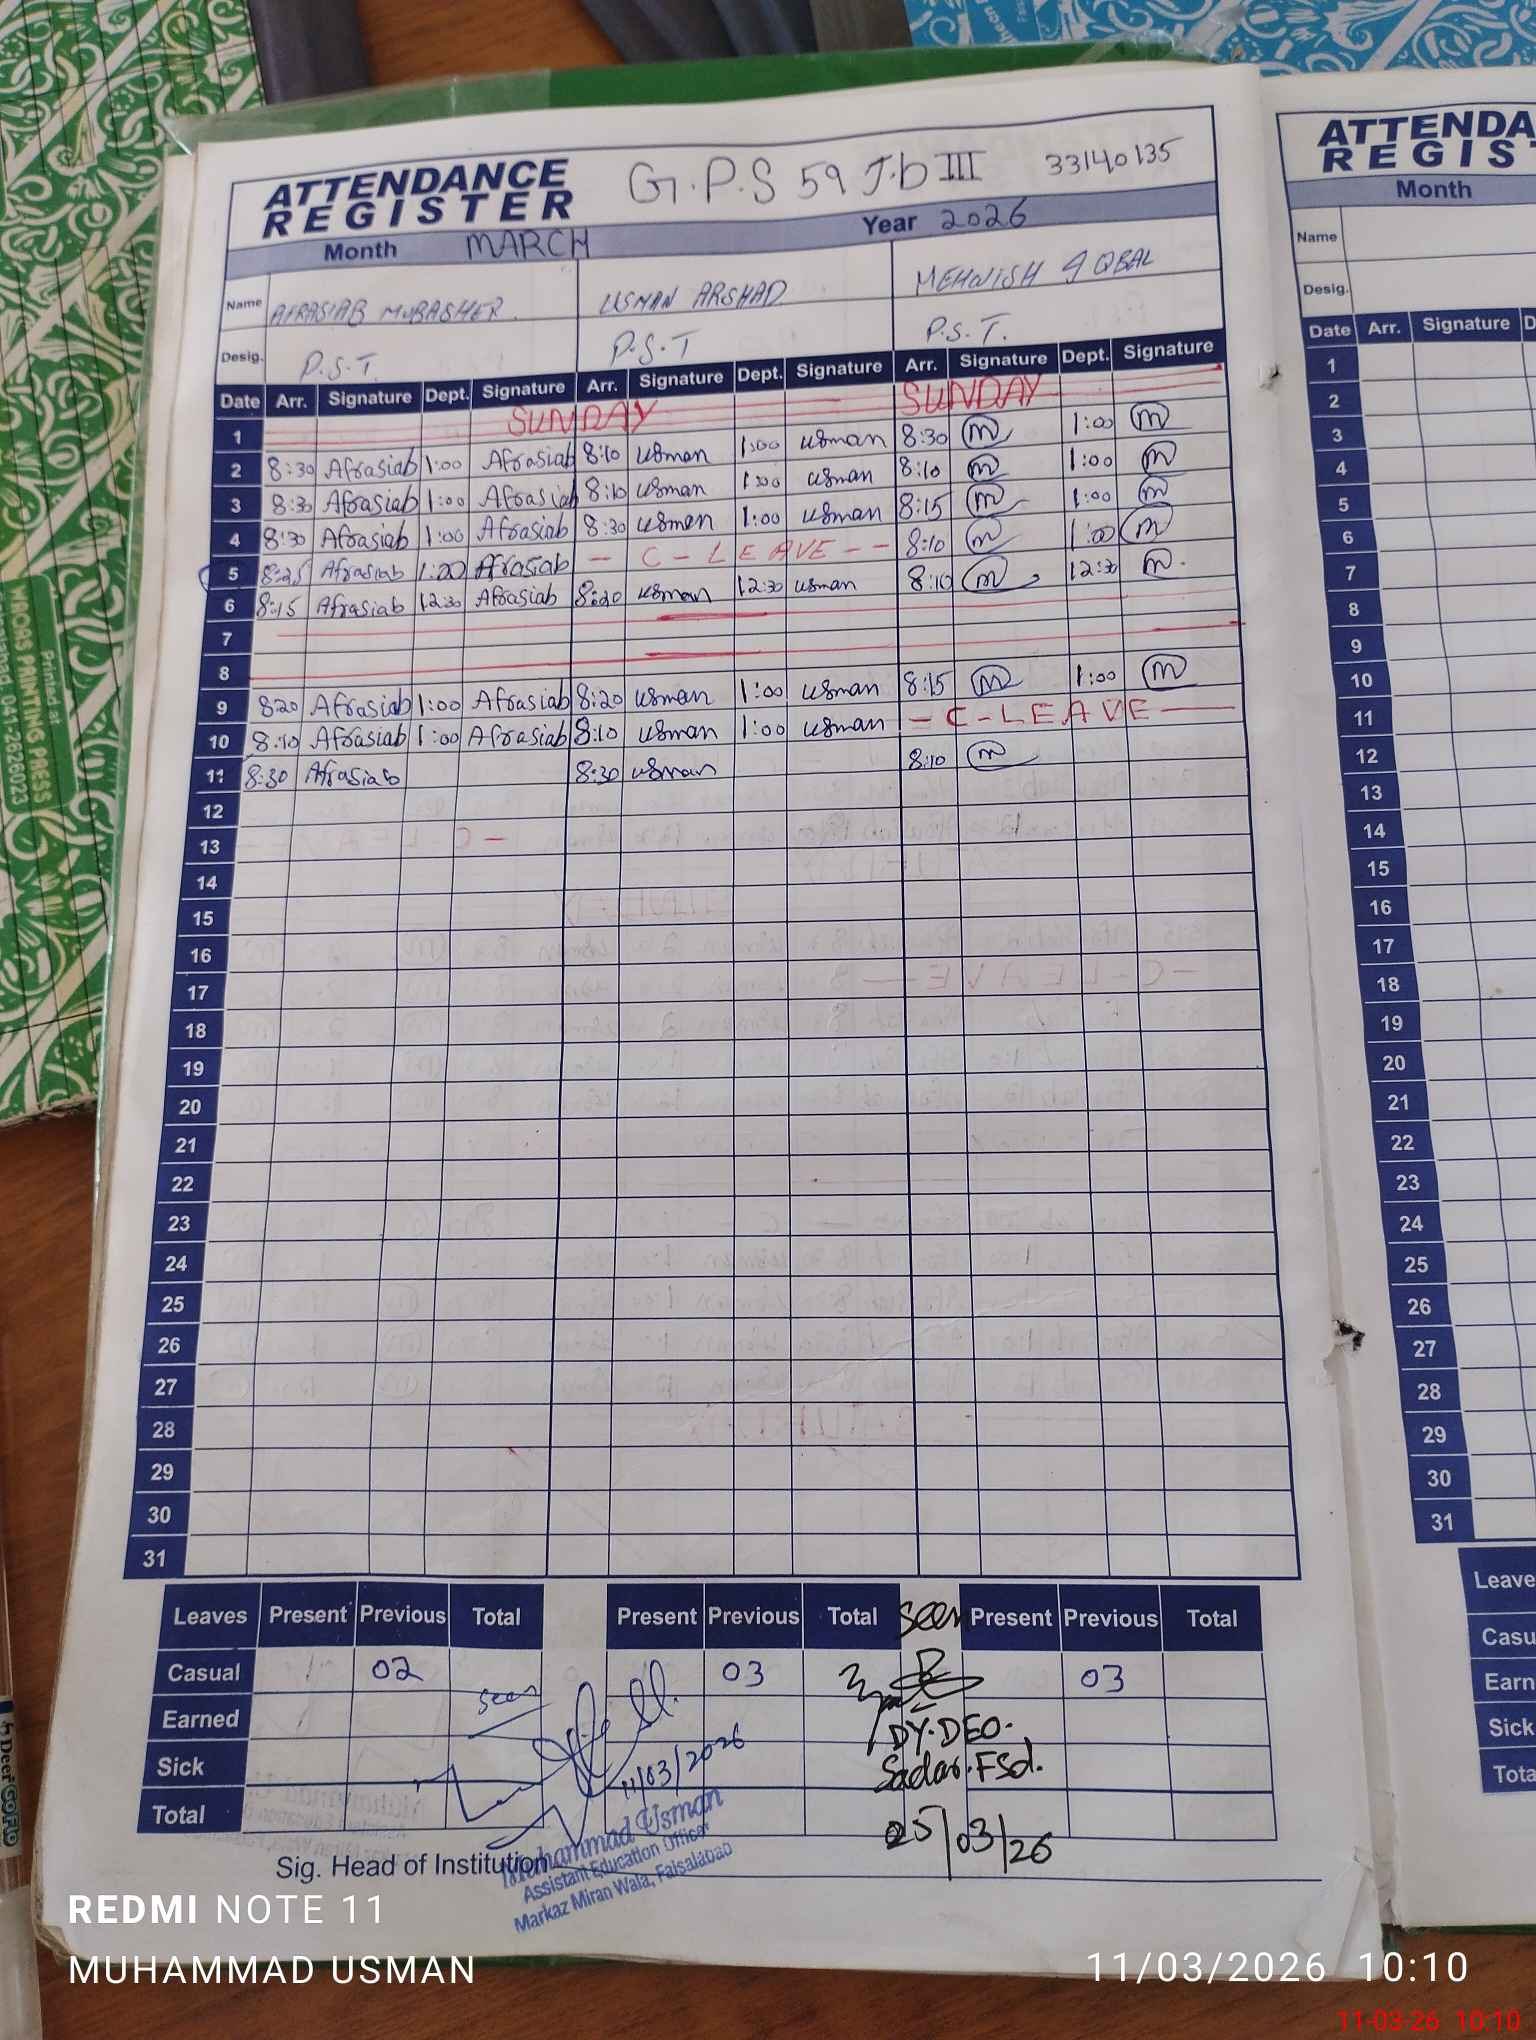 ATTENDANCE REGISTER G.P.S 59 J.b III 33140135
Month MARCH Year 2026
Name AFRASIAB MUBASHER USMAN ARSHAD MEHWISH IQBAL
Desig. P.S.T P.S.T P.S.T.
Date Arr. Signature Dept. Signature Arr. Signature Dept. Signature Arr. Signature Dept. Signature
1 SUNDAY SUNDAY
2 8:30 Afrasiab 1:00 Afrasiab 8:10 usman 1:00 usman 8:30 m 1:00 m
3 8:30 Afrasiab 1:00 Afrasiab 8:10 usman 1:00 usman 8:10 m 1:00 m
4 8:30 Afrasiab 1:00 Afrasiab 8:30 usman 1:00 usman 8:15 m 1:00 m
5 8:25 Afrasiab 1:00 Afrasiab - C - LEAVE - - 8:10 m 1:00 m
6 8:15 Afrasiab 12:30 Afrasiab 8:20 usman 12:30 usman 8:10 m 12:30 m
7
8
9 820 Afrasiab 1:00 Afrasiab 8:20 usman 1:00 usman 8:15 m 1:00 m
10 8:10 Afrasiab 1:00 Afrasiab 8:10 usman 1:00 usman - C - LEAVE -
11 8:30 Afrasiab 8:30 usman 8:10 m
12
13
14
15
16
17
18
19
20
21
22
23
24
25
26
27
28
29
30
31
Leaves Present Previous Total Present Previous Total seen Present Previous Total
Casual 02 03 03
Earned seen
Sick 11/03/2026 DY.DEO.
Sadar.FSd.
Total 05/03/26
Sig. Head of Institution
Muhammad Usman
Assistant Education Officer
Markaz Miran Wala, Faisalabad
ATTENDA
REGIST
Month
Name
Desig.
Date Arr. Signature D
1
2
3
4
5
6
7
8
9
10
11
12
13
14
15
16
17
18
19
20
21
22
23
24
25
26
27
28
29
30
31
Leave
Casu
Earn
Sick
Tota
Printed at
MAQAS PRINTING PRESS
041-2626023
Deer GoFlo
REDMI NOTE 11
MUHAMMAD USMAN
11/03/2026 10:10
11-03-26 10:10